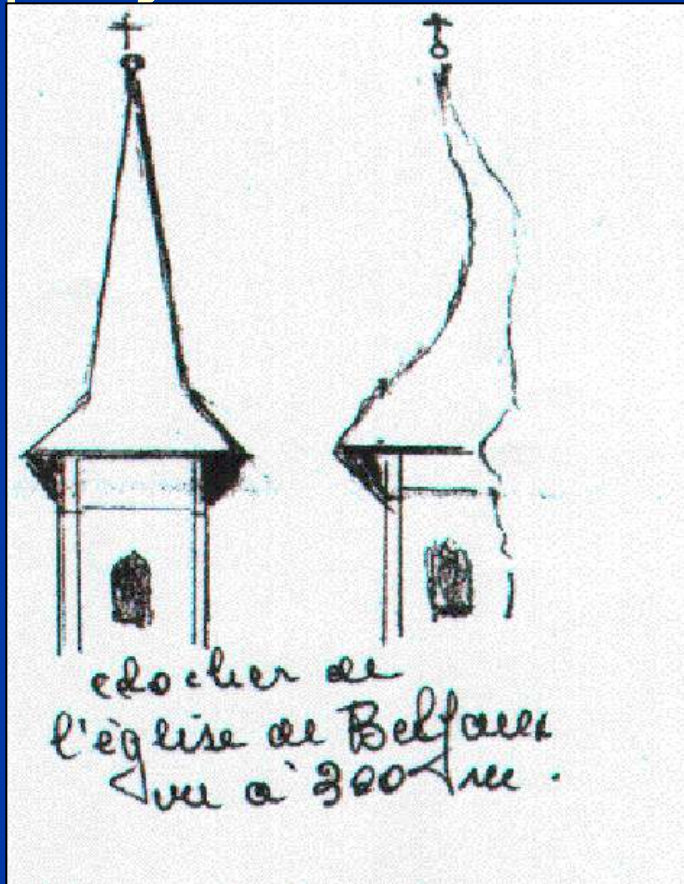 clocher de
l'église de Belfaux
vu à 300 m.